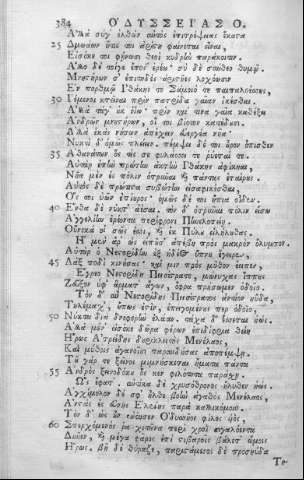 384 ὈΔΥΣΣΕΙΑΣ Ο.
Ἀλλὰ σύγ' ἐλθὼν αὐτὸς ἐπιτρέψειας ἕκαστα
25 Δμωάων ἥτις τοι ἀρίστη φαίνεται εἶναι,
Εἰσόκε τοι φήνωσι θεοὶ κυδρὴν παράκοιτιν.
Ἄλλο δέ τοί τι ἔπος ἐρέω· σὺ δὲ σύνθεο θυμῷ.
Μνηστήρων σ' ἐπιτηδὲς ἀριστῆες λοχόωσιν
Ἐν πορθμῷ Ἰθάκης τε Σάμοιό τε παιπαλοέσσης,
30 Ἱέμενοι κτεῖναι πρὶν πατρίδα γαῖαν ἱκέσθαι.
Ἀλλὰ τάγ' οὐκ ὀΐω· πρὶν καί τινα γαῖα καθέξει
Ἀνδρῶν μνηστήρων, οἵ τοι βίοτον κατέδουσιν.
Ἀλλὰ ἑκὰς νήσων ἀπέχειν εὐεργέα νῆα·
Νυκτὶ δ' ὁμῶς πλείειν· πέμψει δέ τοι οὖρον ὄπισθεν
35 Ἀθανάτων ὅς τίς σε φυλάσσει τε ῥύεταί τε.
Αὐτὰρ ἐπὴν πρώτην ἀκτὴν Ἰθάκης ἀφίκηαι,
Νῆα μὲν ἐς πόλιν ὀτρῦναι καὶ πάντας ἑταίρους·
Αὐτὸς δὲ πρώτιστα συβώτην εἰσαφικέσθαι,
Ὅς τοι ὑῶν ἐπίουρος· ὁμῶς δέ τοι ἤπια οἶδεν.
40 Ἔνθα δὲ νύκτ' ἀέσαι. τὸν δ' ὀτρῦναι πόλιν εἴσω
Ἀγγελίην ἐρέοντα περίφρονι Πηνελοπείῃ,
Οὕνεκά οἱ σῶς ἐσσὶ, καὶ ἐκ Πύλου εἰλήλουθας.
Ἡ μὲν ἄρ' ὣς εἰποῦσ' ἀπέβη πρὸς μακρὸν ὄλυμπον.
Αὐτὰρ ὁ Νεστορίδην ἐξ ἡδέος ὕπνου ἔγειρεν,
45 Λὰξ ποδὶ κινήσας· καί μιν πρὸς μῦθον ἔειπεν,
Ἔγρεο Νεστορίδη Πεισίστρατε, μώνυχας ἵππους
Ζεῦξον ὑφ' ἅρματ' ἄγων, ὄφρα πρήσσωμεν ὁδοῖο.
Τὸν δ' αὖ Νεστορίδης Πεισίστρατος ἀντίον ηὔδα,
Τηλέμαχ', οὔπως ἐστὶν, ἐπειγομένους περ ὁδοῖο,
50 Νύκτα διὰ δνοφερὴν ἐλάαν· τάχα δ' ἔσσεται ἠώς.
Ἀλλὰ μέν' εἰσόκε δῶρα φέρων ἐπιδίφρια θείη
Ἥρως Ἀτρείδης δουρικλειτὸς Μενέλαος,
Καὶ μύθοις ἀγανοῖσι παραυδήσας ἀποπέμψῃ.
Τοῦ γάρ τε ξεῖνος μιμνήσκεται ἤματα πάντα
55 Ἀνδρὸς ξεινοδόκου ὅς κεν φιλότητα παράσχῃ.
Ὣς ἔφατ'. αὐτίκα δὲ χρυσόθρονος ἤλυθεν ἠώς.
Ἀγχίμολον δέ σφ' ἦλθε βοὴν ἀγαθὸς Μενέλαος,
Ἀνστὰς ἐξ εὐνῆς Ἑλένης πάρα καλλικόμοιο.
Τὸν δ' ὡς οὖν ἐνόησεν Ὀδυσσῆος φίλος υἱός,
60 Σπερχόμενός ῥα χιτῶνα περὶ χροῒ σιγαλόεντα
Δῦνεν, καὶ μέγα φᾶρος ἐπὶ στιβαροῖς βάλετ' ὤμοις
Ἥρως. βῆ δὲ θύραζε, παριστάμενος δὲ προσηύδα
Τη-